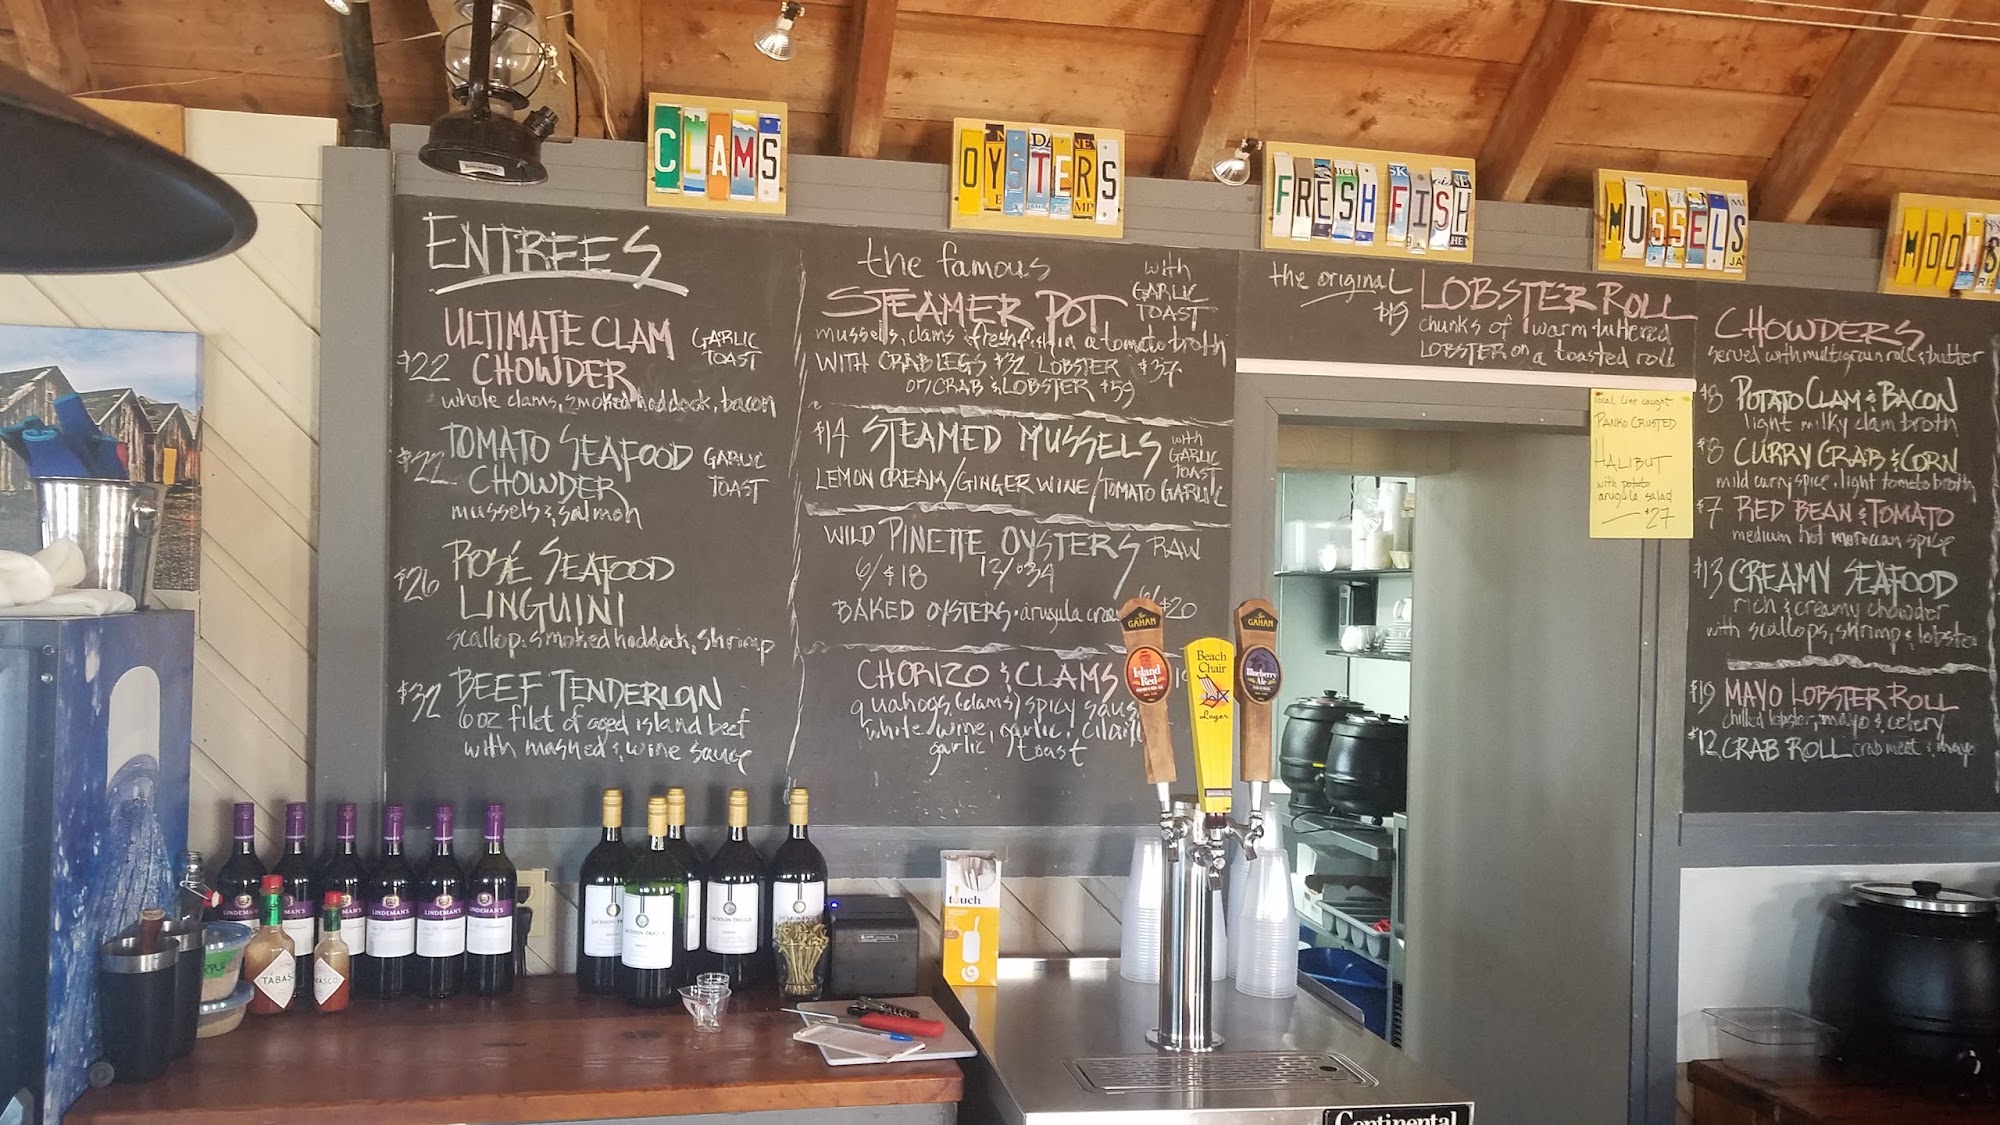 CLAMS
OYSTERS
FRESH FISH
MUSSELS
ENTREES
ULTIMATE CLAM
CHOWDER
GARLIC
TOAST
$22
whole clams, smoked haddock, bacon
TOMATO SEAFOOD
CHOWDER
GARLIC
TOAST
$22
mussels & salmon
ROSÉ SEAFOOD
LINGUINI
$26
scallop, smoked haddock, shrimp
$32 BEEF TENDERLOIN
6 oz filet of aged island beef
with mashed & wine sauce
the famous
STEAMER POT
with
GARLIC
TOAST
mussels, clams & fresh fish in a tomato broth
WITH CRAB LEGS $32 LOBSTER $37
or/CRAB & LOBSTER $59
$14 STEAMED MUSSELS
with
GARLIC
TOAST
LEMON CREAM/GINGER WINE/TOMATO GARLIC
WILD PINETTE OYSTERS RAW
6/$18 12/$34
BAKED OYSTERS. arugula 6/$20
CHORIZO & CLAMS
quahogs (clams) spicy
white wine, garlic,
garlic toast
the original LOBSTER ROLL
$19 chunks of warm buttered
LOBSTER on a toasted roll
local line caught
PANKO CRUSTED
HALIBUT
with potato
arugula salad
$27
CHOWDERS
served with multigrain roll & butter
$8 POTATO CLAM & BACON
light milky clam broth
$8 CURRY CRAB & CORN
mild curry spice. light tomato broth
$7 RED BEAN & TOMATO
medium hot moroccan spice
$13 CREAMY SEAFOOD
rich & creamy chowder
with scallops, shrimp & lobster
$19 MAYO LOBSTER ROLL
chilled lobster, mayo & celery
$12 CRAB ROLL crab meat & mayo
GAHAN
Island
Red
Beach
Chair
Lager
GAHAN
Blueberry
Ale
LINDEMAN'S
LINDEMAN'S
LINDEMAN'S
LINDEMAN'S
JACKSON-TRIGGS
JACKSON-TRIGGS
JACKSON-TRIGGS
TABASCO
touch
Continental